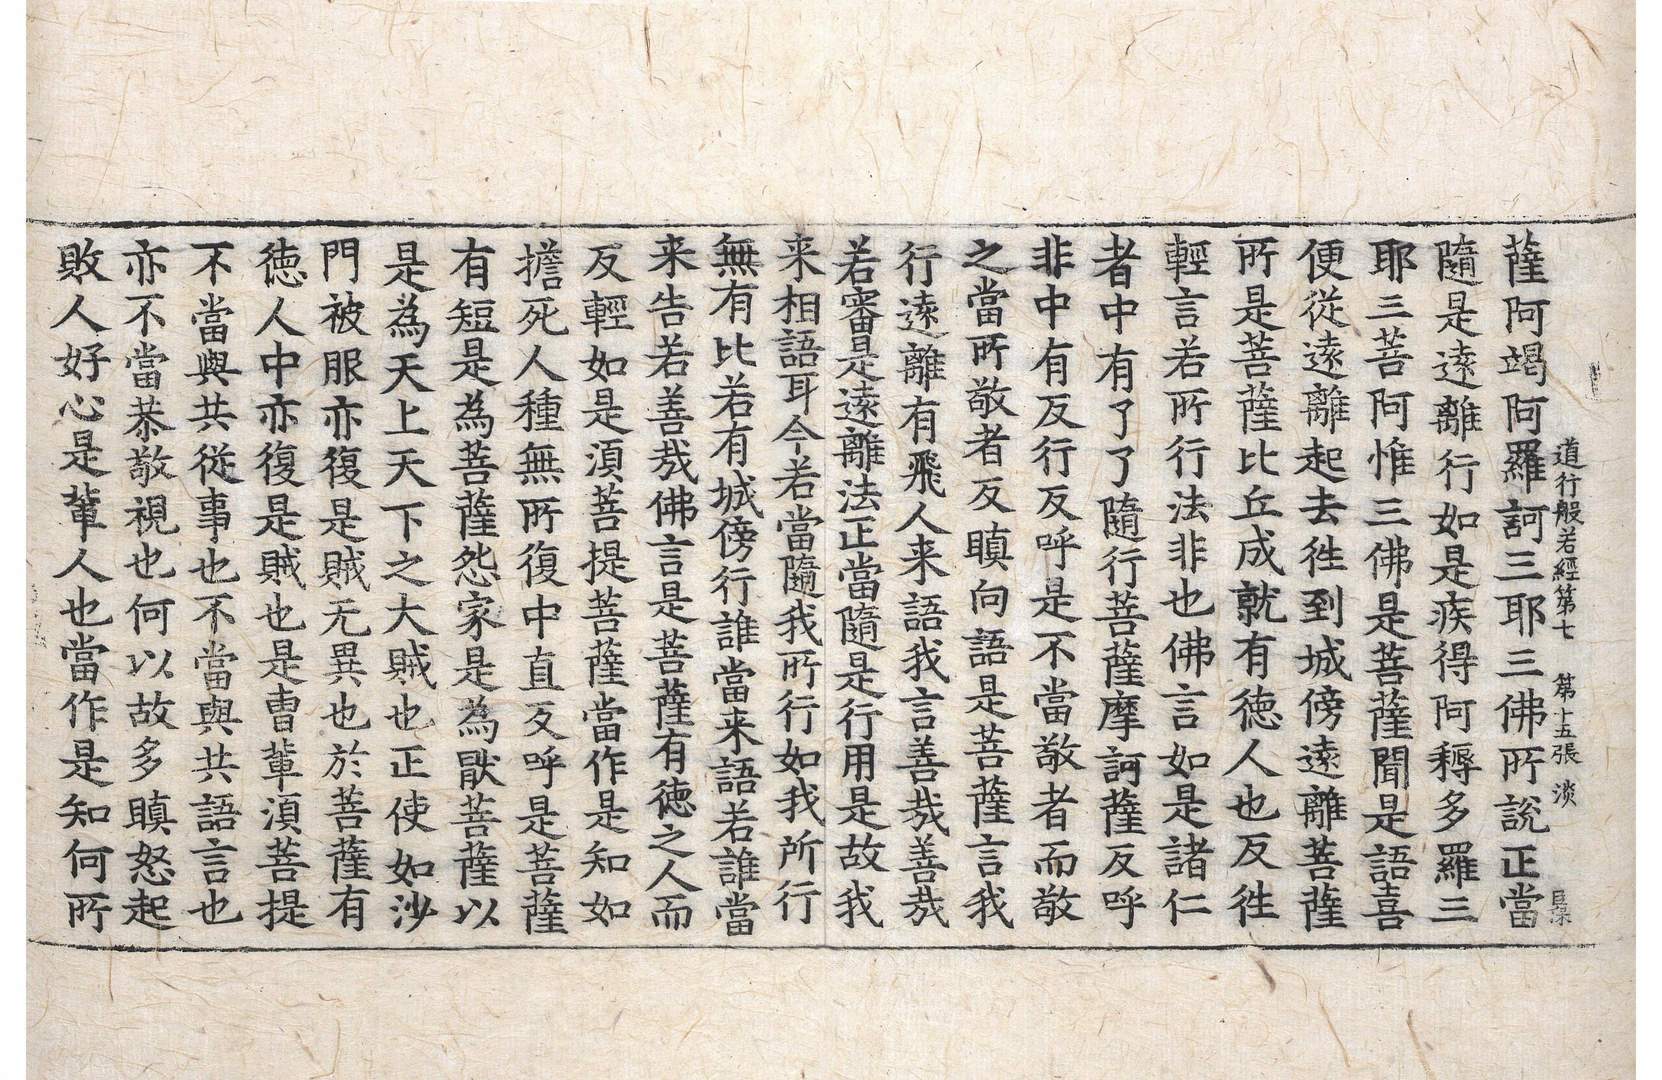 道行般若經第七　第十五張　淡
薩阿竭阿羅訶三耶三佛所說正當
隨是遠離行如是疾得阿耨多羅三
耶三菩阿惟三佛是菩薩聞是語喜
便從遠離起去徃到城傍遠離菩薩
所是菩薩比丘成就有德人也反徃
輕言若所行法非也佛言如是諸仁
者中有了了隨行菩薩摩訶薩反呼
非中有反行反呼是不當敬者而敬
之當所敬者反瞋向語是菩薩言我
行遠離有飛人来語我言善哉善哉
若審是遠離法正當隨是行用是故我
来相語耳今若當隨我所行如我所行
無有比若有城傍行誰當来語若誰當
来告若善哉佛言是菩薩有德之人而
反輕如是湏菩提菩薩當作是知如
擔死人種無所復中直反呼是菩薩
有短是為菩薩怨家是為猒菩薩以
是為天上天下之大賊也正使如沙
門被服亦復是賊无異也於菩薩有
德人中亦復是賊也是曹輩湏菩提
不當與共從事也不當與共語言也
亦不當恭敬視也何以故多瞋怒起
敗人好心是輩人也當作是知何所